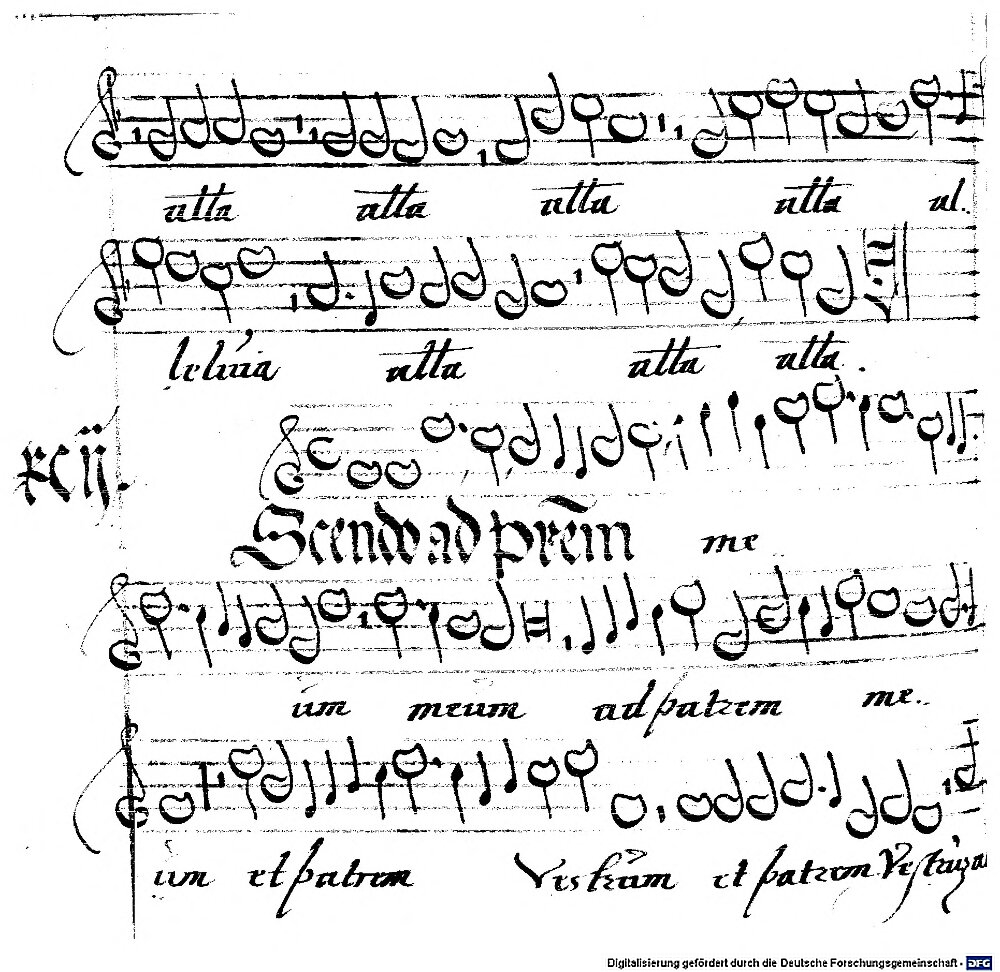 alla alla alla alla al.
leluia alla alla alla.
xcij.
Scendo ad prēm me
um meum ad patrem me..
um et patrem Vestrum et patrem
Digitalisierung gefördert durch die Deutsche Forschungsgemeinschaft - DFG